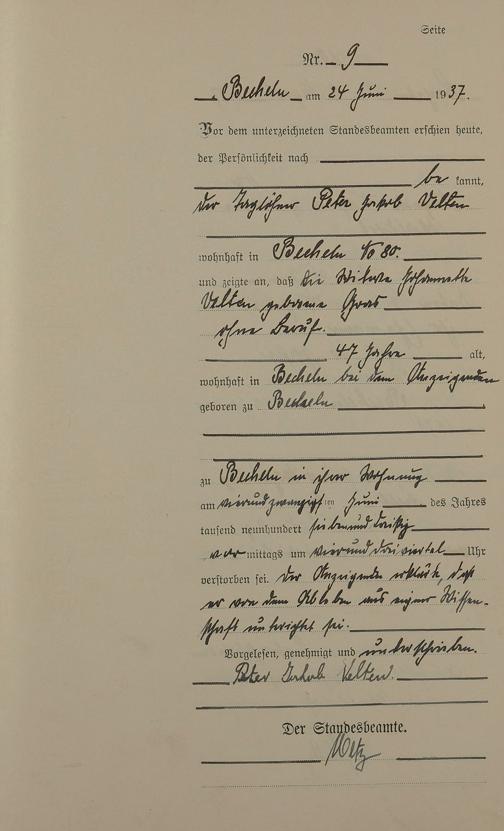 Seite
Nr. 9
Becheln am 24 Juni 1937.
Vor dem unterzeichneten Standesbeamten erschien heute,
der Persönlichkeit nach
be kannt,
der Taglöhner Peter Jakob Velten
wohnhaft in Becheln No 80.
und zeigte an, daß die Witwe Johannette
Velten geborene Gras
ohne Beruf.
47 Jahre alt,
wohnhaft in Becheln bei dem Anzeigenden
geboren zu Becheln
zu Becheln in ihrer Wohnung
am vierundzwanzigsten Juni des Jahres
tausend neunhundert siebenunddreißig
vor mittags um vierunddreiviertel Uhr
verstorben sei. Der Anzeigende erklärte, daß
er von dem Ableben aus eigner Wissen-
schaft unterrichtet sei.
Vorgelesen, genehmigt und unterschrieben.
Peter Jakob Velten.
Der Standesbeamte.
Metz